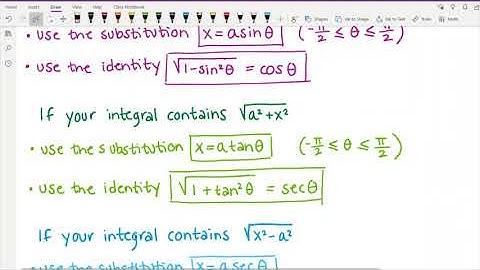 Insert Draw View Help Class Notebook
Shapes Ink to Shape Ink to Text Math
• use the substitution x = a sinθ (-π/2 ≤ θ ≤ π/2)
• use the identity √(1-sin²θ) = cosθ
If your integral contains √(a²+x²)
• use the substitution x = a tanθ (-π/2 ≤ θ ≤ π/2)
• use the identity √(1+tan²θ) = secθ
If your integral contains √(x²-a²)
• use the substitution x = a secθ